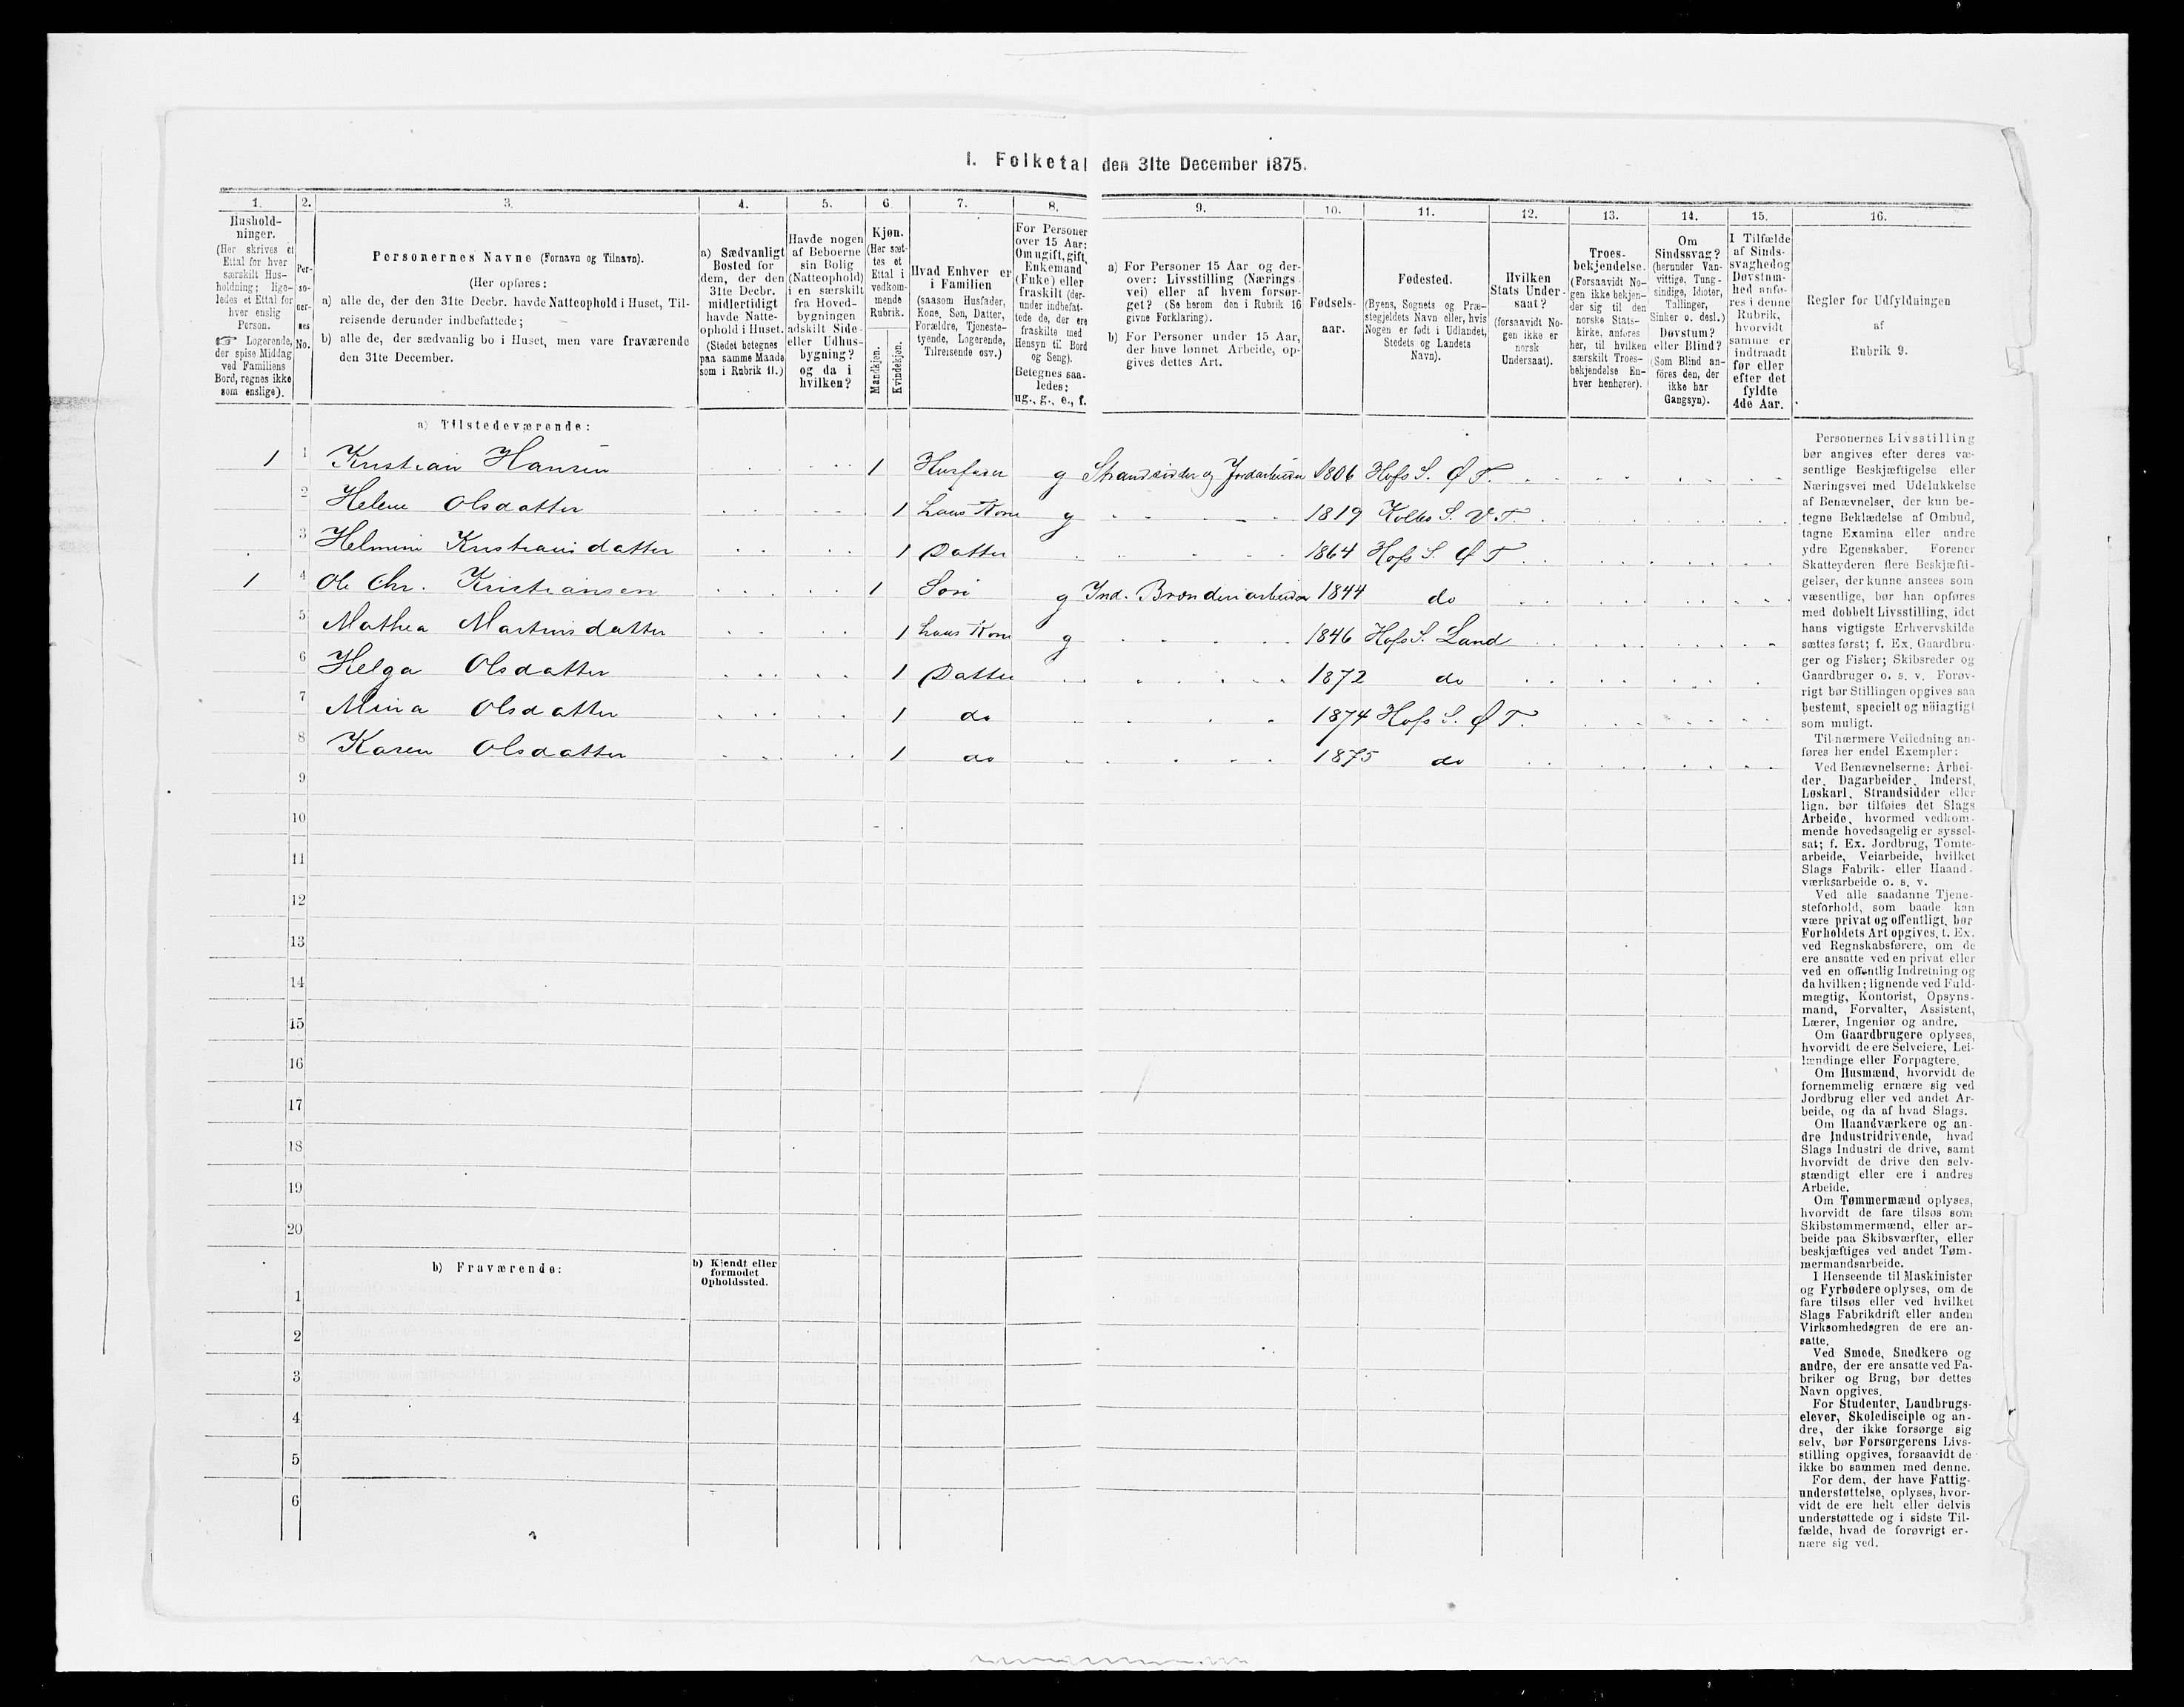 I. Folketal den 31te December 1875.
1. 2. 3. 4. 5. 6. 7. 8. 9. 10. 11. 12. 13. 14. 15. 16.
Hushold-
ninger.
(Her skrives et
Ettal for hver
særskilt Hus-
holdning; lige-
ledes et Ettal for
hver enslig
Person.
☞ Logerende,
der spise Middag
ved Familiens
Bord, regnes ikke
som enslige).
Per-
so-
ner-
nes
No.
Personernes Navne (Fornavn og Tilnavn).
(Her opføres:
a) alle de, der den 31te Decbr. havde Natteophold i Huset, Til-
reisende derunder indbefattede;
b) alle de, der sædvanlig bo i Huset, men vare fraværende
den 31te December.
a) Sædvanligt
Bosted for
dem, der den
31te Decbr.
midlertidigt
havde Natte-
ophold i Huset.
(Stedet betegnes
paa samme Maade
som i Rubrik 11.)
Havde nogen
af Beboerne
sin Bolig
(Natteophold)
i en særskilt
fra Hoved-
bygningen
adskilt Side-
eller Udhus-
bygning?
og da i
hvilken?
Kjøn.
(Her sæt-
tes et
Ettal i
vedkom-
mende
Rubrik.
Mandkjøn.
Kvindekjøn.
Hvad Enhver er
i Familien
(saasom Husfader,
Kone, Søn, Datter,
Forældre, Tjeneste-
tyende, Logerende,
Tilreisende osv.)
For Personer
over 15 Aar:
Om ugift, gift,
Enkemand
(Enke) eller
fraskilt (der-
under indbefat-
tede de, der ere
fraskilte med
Hensyn til Bord
og Seng).
Betegnes saa-
ledes:
ug., g., e., f.
a) For Personer 15 Aar og der-
over: Livsstilling (Nærings-
vei) eller af hvem forsør-
get? (Se herom den i Rubrik 16
givne Forklaring).
b) For Personer under 15 Aar,
der have lønnet Arbeide, op-
gives dettes Art.
Fødsels-
aar.
Fødested.
(Byens, Sognets og Præ-
stegjeldets Navn eller, hvis
Nogen er født i Udlandet,
Stedets og Landets
Navn).
Hvilken
Stats Under-
saat?
(forsaavidt No-
gen ikke er
norsk
Undersaat).
Troes-
bekjendelse.
(Forsaavidt No-
gen ikke bekjen-
der sig til den
norske Stats-
kirke, anføres
her, til hvilken
særskilt Troes-
bekjendelse En-
hver henhører).
Om
Sindssvag?
(herunder Van-
vittige, Tung-
sindige, Idioter,
Tullinger,
Sinker o. desl.)
Døvstum?
eller Blind?
(Som Blind an-
føres den, der
ikke har
Gangsyn).
I Tilfælde
af Sinds-
svaghed og
Døvstum-
hed anfø-
res i denne
Rubrik,
hvorvidt
samme er
indtraadt
før eller
efter det
fyldte
4de Aar.
Regler for Udfyldningen
af
Rubrik 9.
a) Tilstedeværende:
1 1 Kristian Hansen 1 Husfader g Strandsidder og Jordarbeider 1806 Hofs S. Ø T.
2 Helene Olsdatter 1 hans Kone g 1819 Kolbo S. V T.
3 Helmine Kristiansdatter 1 Datter 1864 Hofs S. Ø T
1 4 Ole Chr. Kristiansen 1 Søn g Ind. Brønderiarbeider 1844 do
5 Mathea Martinsdatter 1 hans Kone g 1846 Hofs S. Land
6 Helga Olsdatter 1 Datter 1872 do
7 Mina Olsdatter 1 do 1874 Hofs S. Ø T.
8 Karen Olsdatter 1 do 1875 do
9
10
11
12
13
14
15
16
17
18
19
20
b) Fraværende:
b) Kjendt eller
formodet
Opholdssted.
1
2
3
4
5
6
Personernes Livsstilling
bør angives efter deres væ-
sentlige Beskjæftigelse eller
Næringsvei med Udelukkelse
af Benævnelser, der kun be-
tegne Beklædelse af Ombud,
tagne Examina eller andre
ydre Egenskaber. Forener
Skatteyderen flere Beskjæfti-
gelser, der kunne ansees som
væsentlige, bør han opføres
med dobbelt Livsstilling, idet
hans vigtigste Erhvervskilde
sættes først; f. Ex. Gaardbru-
ger og Fisker; Skibsreder og
Gaardbruger o. s. v. Forøv-
rigt bør Stillingen opgives saa
bestemt, specielt og nöiagtigt
som muligt.
Til nærmere Veiledning an-
føres her endel Exempler:
Ved Benævnelserne: Arbei-
der, Dagarbeider, Inderst,
Løskarl, Strandsidder eller
lign. bør tilføies det Slags
Arbeide, hvormed vedkom-
mende hovedsagelig er syssel-
sat; f. Ex. Jordbrug, Tomte-
arbeide, Veiarbeide, hvilket
Slags Fabrik- eller Haand-
værksarbeide o. s. v.
Ved alle saadanne Tjene-
steforhold, som baade kan
være privat og offentligt, bør
Forholdets Art opgives, t. Ex.
ved Regnskabsførere, om de
ere ansatte ved en privat eller
ved en offentlig Indretning og
da hvilken; lignende ved Fuld-
mægtig, Kontorist, Opsyns-
mand, Forvalter, Assistent,
Lærer, Ingeniør og andre.
Om Gaardbrugere oplyses,
hvorvidt de ere Selveiere, Lei-
lændinge eller Forpagtere.
Om Husmænd, hvorvidt de
fornemmelig ernære sig ved
Jordbrug eller ved andet Ar-
beide, og da af hvad Slags.
Om Haandværkere og an-
dre Industridrivende, hvad
Slags Industri de drive, samt
hvorvidt de drive den selv-
stændigt eller ere i andres
Arbeide.
Om Tømmermænd oplyses,
hvorvidt de fare tilsøs som
Skibstømmermænd, eller ar-
beide paa Skibsværfter, eller
beskjæftiges ved andet Tøm-
mermandsarbeide.
I Henseende til Maskinister
og Fyrbødere oplyses, om de
fare tilsøs eller ved hvilket
Slags Fabrikdrift eller anden
Virksomhedsgren de ere an-
satte.
Ved Smede, Snedkere og
andre, der ere ansatte ved Fa-
briker og Brug, bør dettes
Navn opgives.
For Studenter, Landbrugs-
elever, Skoledisciple og an-
dre, der ikke forsørge sig
selv, bør Forsørgerens Livs-
stilling opgives, forsaavidt de
ikke bo sammen med denne.
For dem, der have Fattig-
understøttelse, oplyses, hvor-
vidt de ere helt eller delvis
understøttede og i sidste Til-
fælde, hvad de forøvrigt er-
nære sig ved.